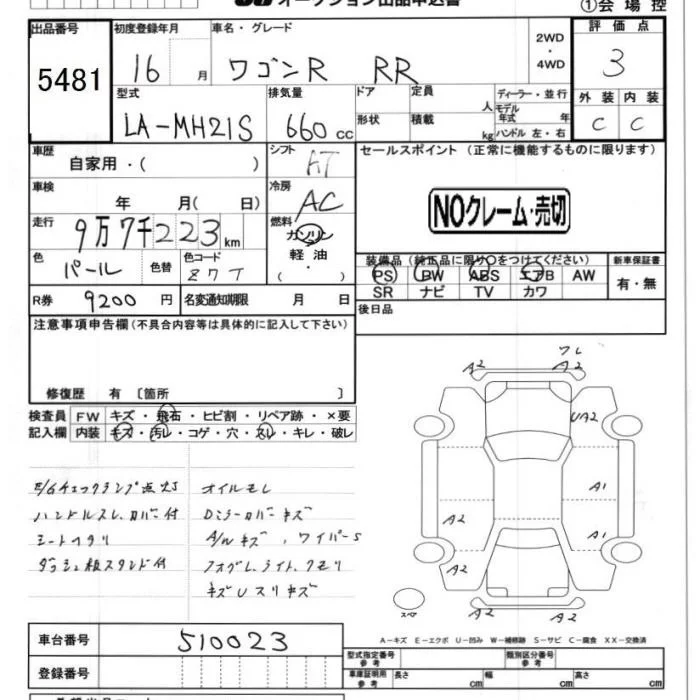 オークション出品申込書
①会場控
出品番号 初度登録年月 車名・グレード 2WD・4WD 評価点
5481 16 月 ワゴンR RR 3
型式 排気量 ドア 定員 人 ディーラー・並行 外装 内装
LA-MH21S 660 CC 形状 積載 kg モデル年式 年 ハンドル 左・右 C C
車歴 自家用・( ) シフト AT セールスポイント (正常に機能するものに限ります)
車検 年 月( 日) 冷房 AC NOクレーム・売切
走行 9万7千223km 燃料 ガソリン 軽油・( )
色 パール 色替 色コード Z7T
装備品(純正品に限り○をつけてください) 新車保証書
PS PW ABS エアB AW 有・無
SR ナビ TV カワ
R券 9200円 名変通知期限 月 日 後日品
注意事項申告欄(不具合内容等は具体的に記入して下さい)
修復歴 有〔箇所 〕
検査員 FW キズ・飛石・ヒビ割・リペア跡・×要
記入欄 内装 キズ・汚レ・コゲ・穴・スレ・キレ・破レ
E/Gチェックランプ点灯 オイルモレ
ハンドルスレ、カバー付 Dミラーカバーキズ
シートヘタリ A/Wキズ、ワイパーS
ダッシュ板スタンド付 フォグLライトクモリ
キズUスリキズ
ワレ
A2 A2
UA2
A1
A2 A1
A2 A2
スペア A2 A2
A-キズ E-エクボ U-凹み W-補修跡 S-サビ C-腐食 XX-交換済
車台番号 510023
型式指定番号 参考 類別区分番号 参考
登録番号
車庫証明用 参考 長さ cm 幅 cm 高さ cm